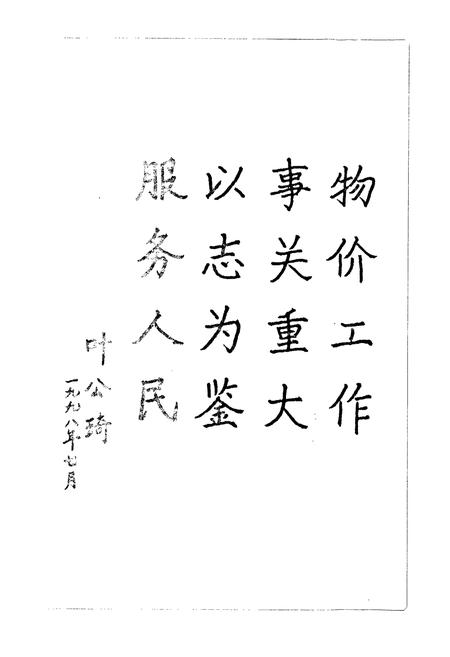 物价工作
事关重大
以志为鉴
服务人民
叶公琦
一九九八年七月